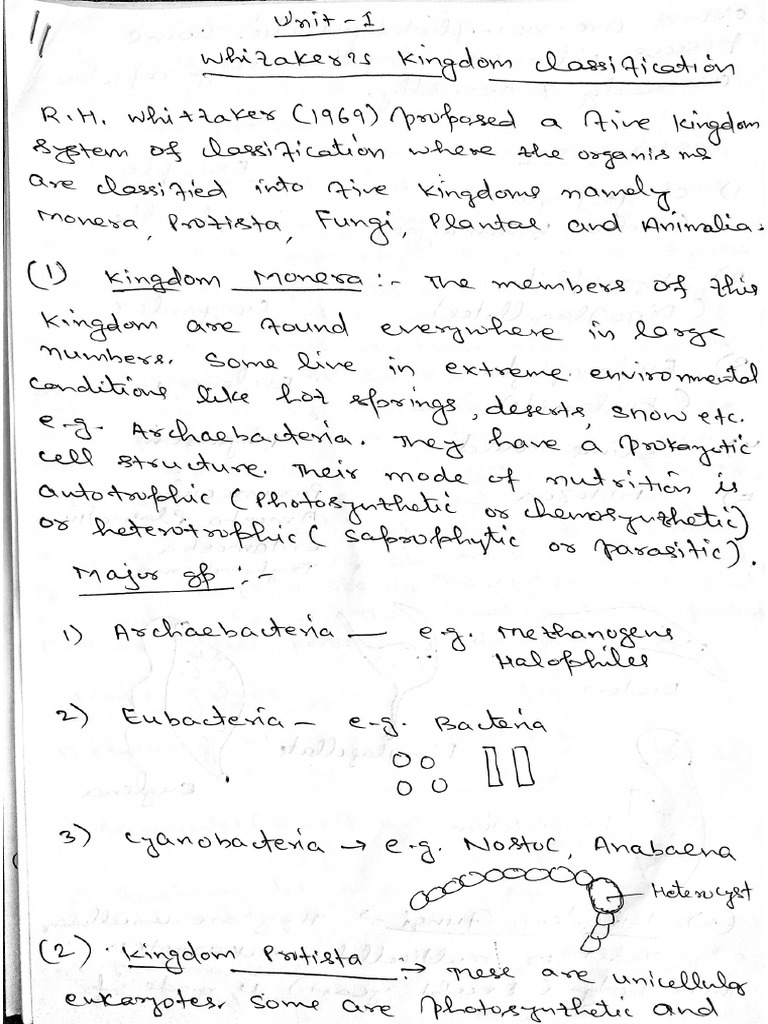 Unit - I
Whizaker's Kingdom Classification
R.H. Whitzaker (1969) Proposed a Five Kingdom
System of Classification where the organisms
are classified into Five Kingdoms namely,
Monera, Protista, Fungi, Plantae and Animalia.
(1) Kingdom Monera :- The members of this
Kingdom are found everywhere in large
numbers. Some live in extreme environmental
conditions like hot springs, deserts, snow etc.
e-g. Archaebacteria. They have a Prokaryotic
cell structure. Their mode of nutrition is
autotrophic (Photosynthetic or chemosynthetic)
or heterotrophic (Saprophytic or parasitic).
Major gp :-
1) Archaebacteria — e-g. Methanogens
Halophiles
2) Eubacteria — e-g. Bacteria
3) Cyanobacteria → e-g. Nostoc, Anabaena
Heterocyst
(2) Kingdom Protista :→ These are unicellular
eukaryotes. Some are Photosynthetic and